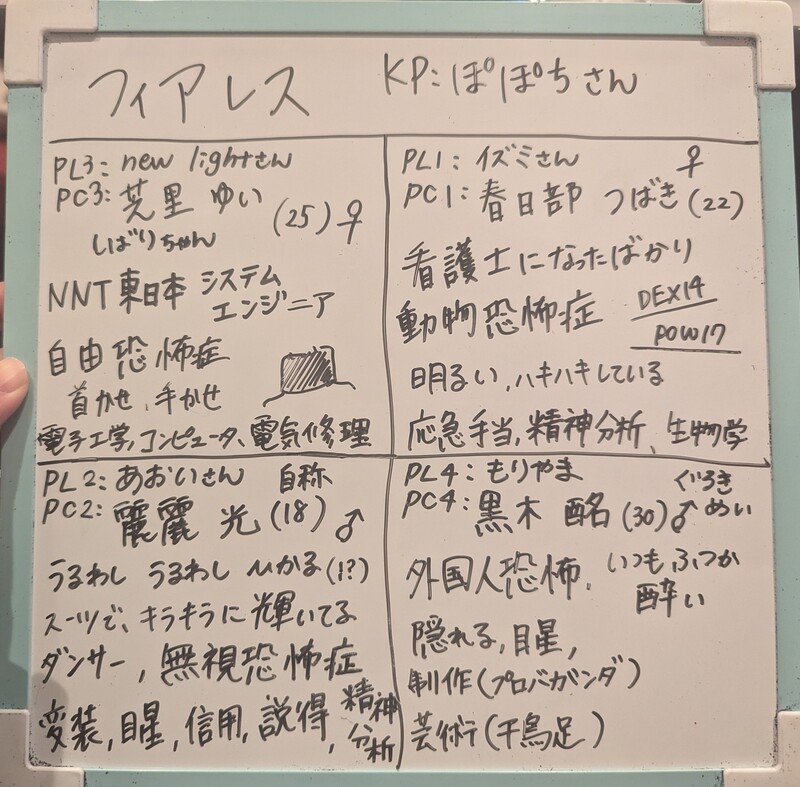 フィアレス KP:ぽぽちさん
PL3: new lightさん
PC3: 芫里 ゆい (25)♀
しばりちゃん
NNT東日本 システム
エンジニア
自由恐怖症
首かせ、手かせ
電子工学,コンピュータ、電気修理
PL1: イズミさん ♀
PC1: 春日部 つばき(22)
看護士になったばかり
動物恐怖症 DEX14
POW17
明るい,ハキハキしている
応急手当,精神分析、生物学
PL2: あおいさん 自称
PC2: 麗麗 光(18)♂
うるわし うるわし ひかる(!?)
スーツで、キラキラに輝いてる
ダンサー,無視恐怖症
変装,目星,信用,説得,精神
分析
PL4: もりやま ぐろき
PC4: 黒木 酩(30)♂ めい
外国人恐怖、いつもふつか
酔い
隠れる,目星,
制作(プロパガンダ)
芸術(千鳥足)